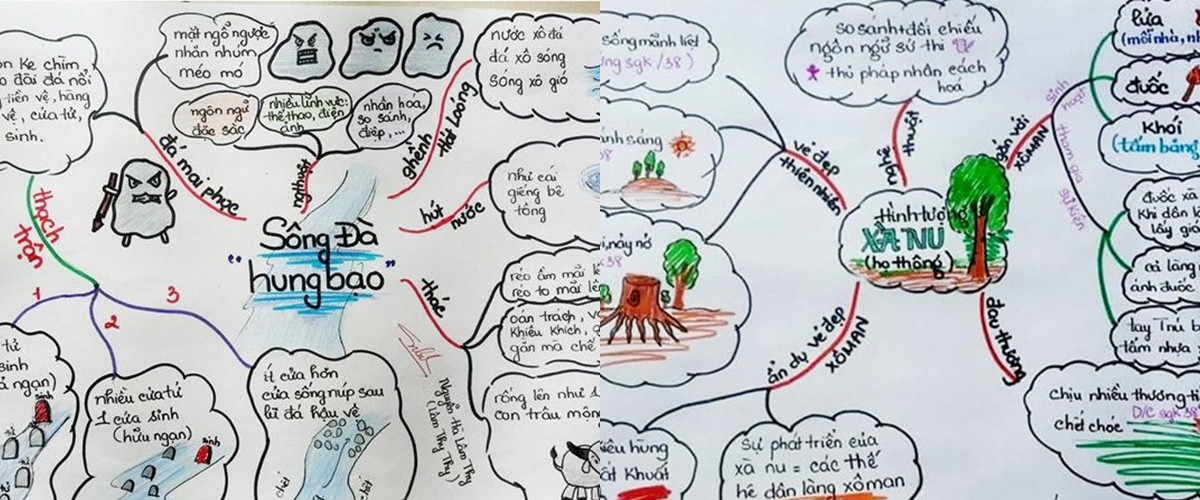 mặt ngổ ngược
nhăn nhúm
méo mó
nước xô đá
đá xô sóng
sóng xô gió
ngôn ngữ
đặc sắc
nhiều lĩnh vực:
thể thao, điện
ảnh
nhân hoá,
so sánh,
điệp,...
sinh.
đá mai phục
nghthuật
ghềnh
Hát Loóng
hút
nước
như cái
giếng bê
tông
thạch
trận
Sông Đà
"hung bạo"
thác
1
2
3
réo to mãi
oán trách,
khiêu khích,
gằn mà chế
rống lên như
con trâu mộng
nhiều cửa tử
1 cửa sinh
(hữu ngạn)
sinh
ít cửa hơn
cửa sống núp sau
lũ đá hậu vệ
Nguyễn Hà Lâm Thy
(Lâm Thy Thy)
sống mãnh liệt
sgk/38)
so sánh + đối chiếu
ngôn ngữ sử thi
thủ pháp nhân cách
hoá
lửa
đuốc
Khói
(tấm bảng
ánh sáng
nảy nở
vẻ đẹp
thiên nhiên
nghệ
thuật
gắn với
XÔMAN
sinh hoạt
tham gia
sự kiện
Hình tượng
XÀ NU
(hệ thống)
ẩn dụ vẻ đẹp
XÔMAN
đau thương
đuốc xà
Khi dân
lấy
cả làng
ánh đuốc
tay Tnú
tẩm nhựa
Chịu nhiều thương
D/C sgk 38
chở che
hùng
Khuất
Sự phát triển của
xà nu = các thế
hệ dân làng xôman